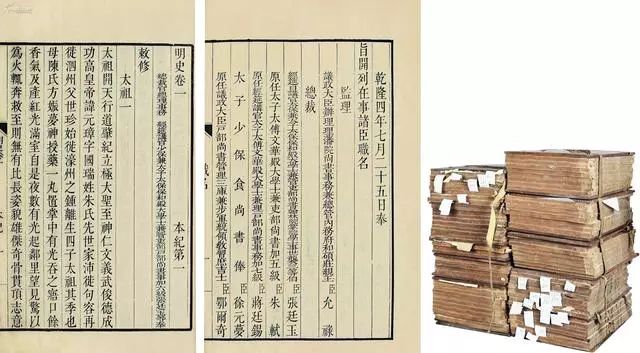 明史卷一 本紀第一
總裁官總理事務經筵講官少保兼太子太保保和殿大學士兼管吏部戶部尚書事加六級張廷玉等奉
敕修
太祖一
太祖開天行道肇紀立極大聖至神仁文義武俊德成
功高皇帝諱元璋字國瑞姓朱氏先世家沛徙句容再
徙泗州父世珍始徙濠州之鍾離生四子太祖其季也
母陳氏方娠夢神授藥一丸置掌中有光吞之寤口餘
香氣及產紅光滿室自是夜數有光起鄰里望見驚以
為火輒奔救至則無有比長姿貌雄傑奇骨貫頂志意
本紀一
乾隆四年七月二十五日奉
旨開列在事諸臣職名
監理
議政大臣辦理理藩院尚書事務兼總管內務府和碩莊親王臣允祿
總裁
臣張廷玉
原任經筵講官太子太傅文華殿大學士兼吏部尚書加五級臣朱軾
原任經筵講官太子太傅文華殿大學士兼理戶部尚書事加七級臣蔣廷錫
太子少保食尚書俸臣徐元夢
原任議政大臣戶部尚書臣鄂爾奇
職名